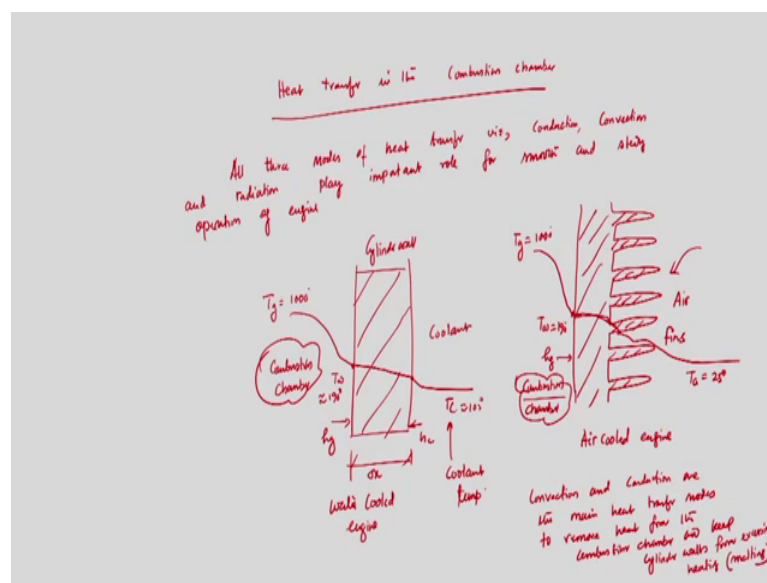 Heat transfer in the Combustion chamber
All three modes of heat transfer viz, conduction, Convection
and radiation play important role for smooth and steady
operation of engine
Cylinder wall
Tg = 1000°
Coolant
Combustion
Chamber
Tw
≈ 190°
Tc ≈ 105°
hg
hc
Δx
Coolant
temp
Water Cooled
engine
Tg = 1000°
Air
Tw = 190°
fins
hg
Combustion
Chamber
Ta = 25°
Air cooled engine
Convection and Conduction are
the main heat transfer modes
to remove heat from the
combustion chamber and keep
cylinder walls from excessive
heating (melting)